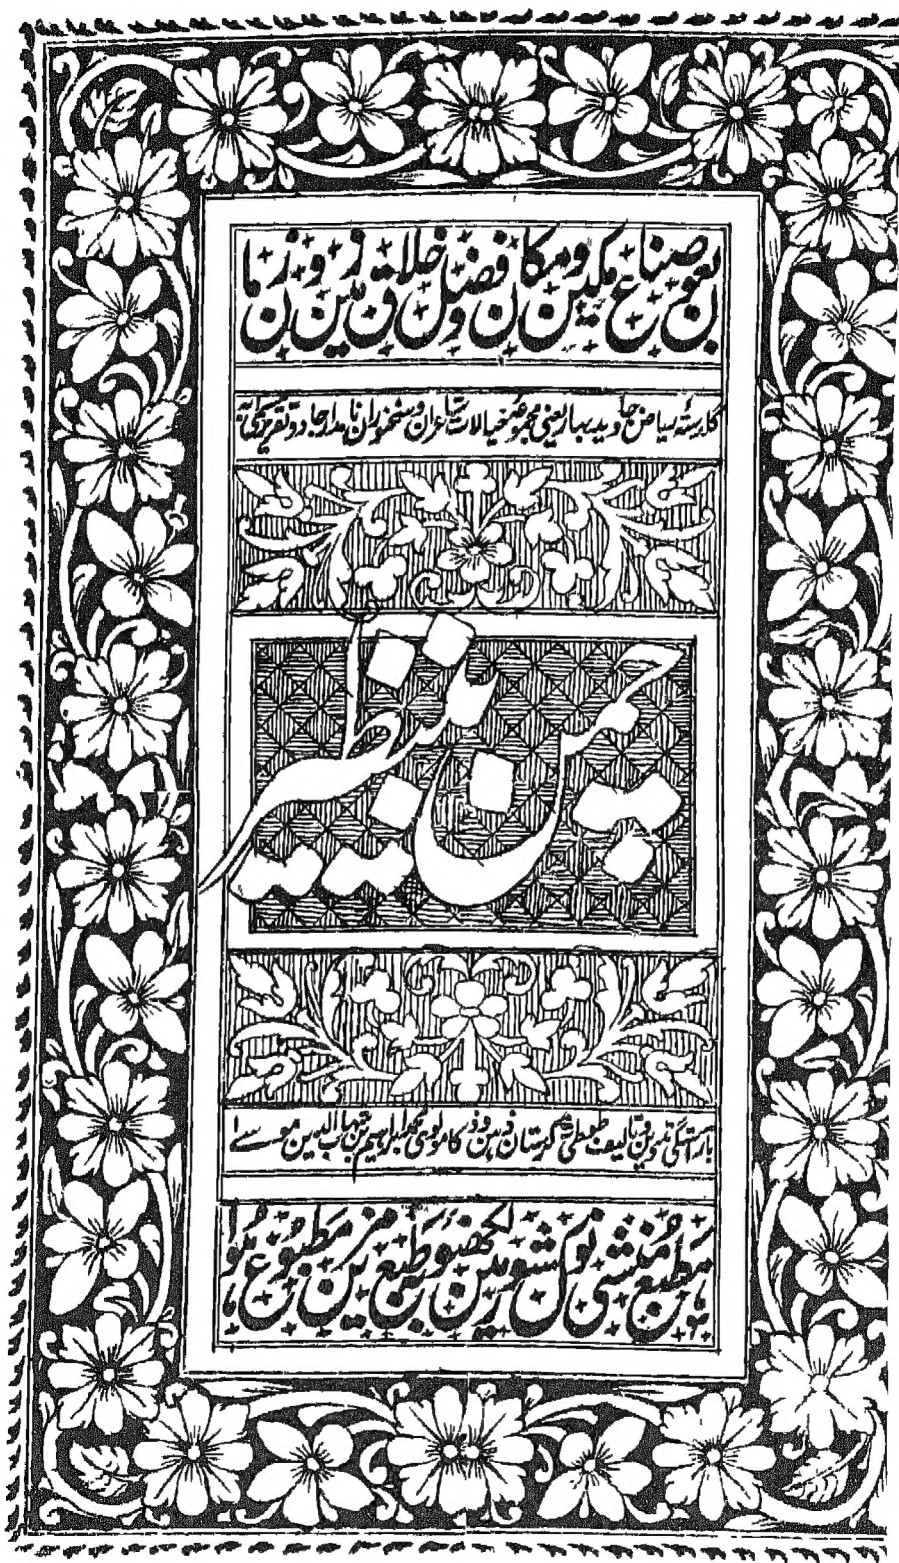 بعون صناع مکین و مکان و فضل خلاق زمین و زمان
گلدستۂ ریاض جاوید بہار یعنی مجموعہ خیالات شاعران و سخنوران نامدار جادو تقریر یکتا
چمن بینظیر
تالیف طوطی شکرستان مولوی محمد ابراہیم بن شہاب الدین موسے
مطبع منشی نولکشور مین لکھنؤ طبع مزین مطبوع ہوا